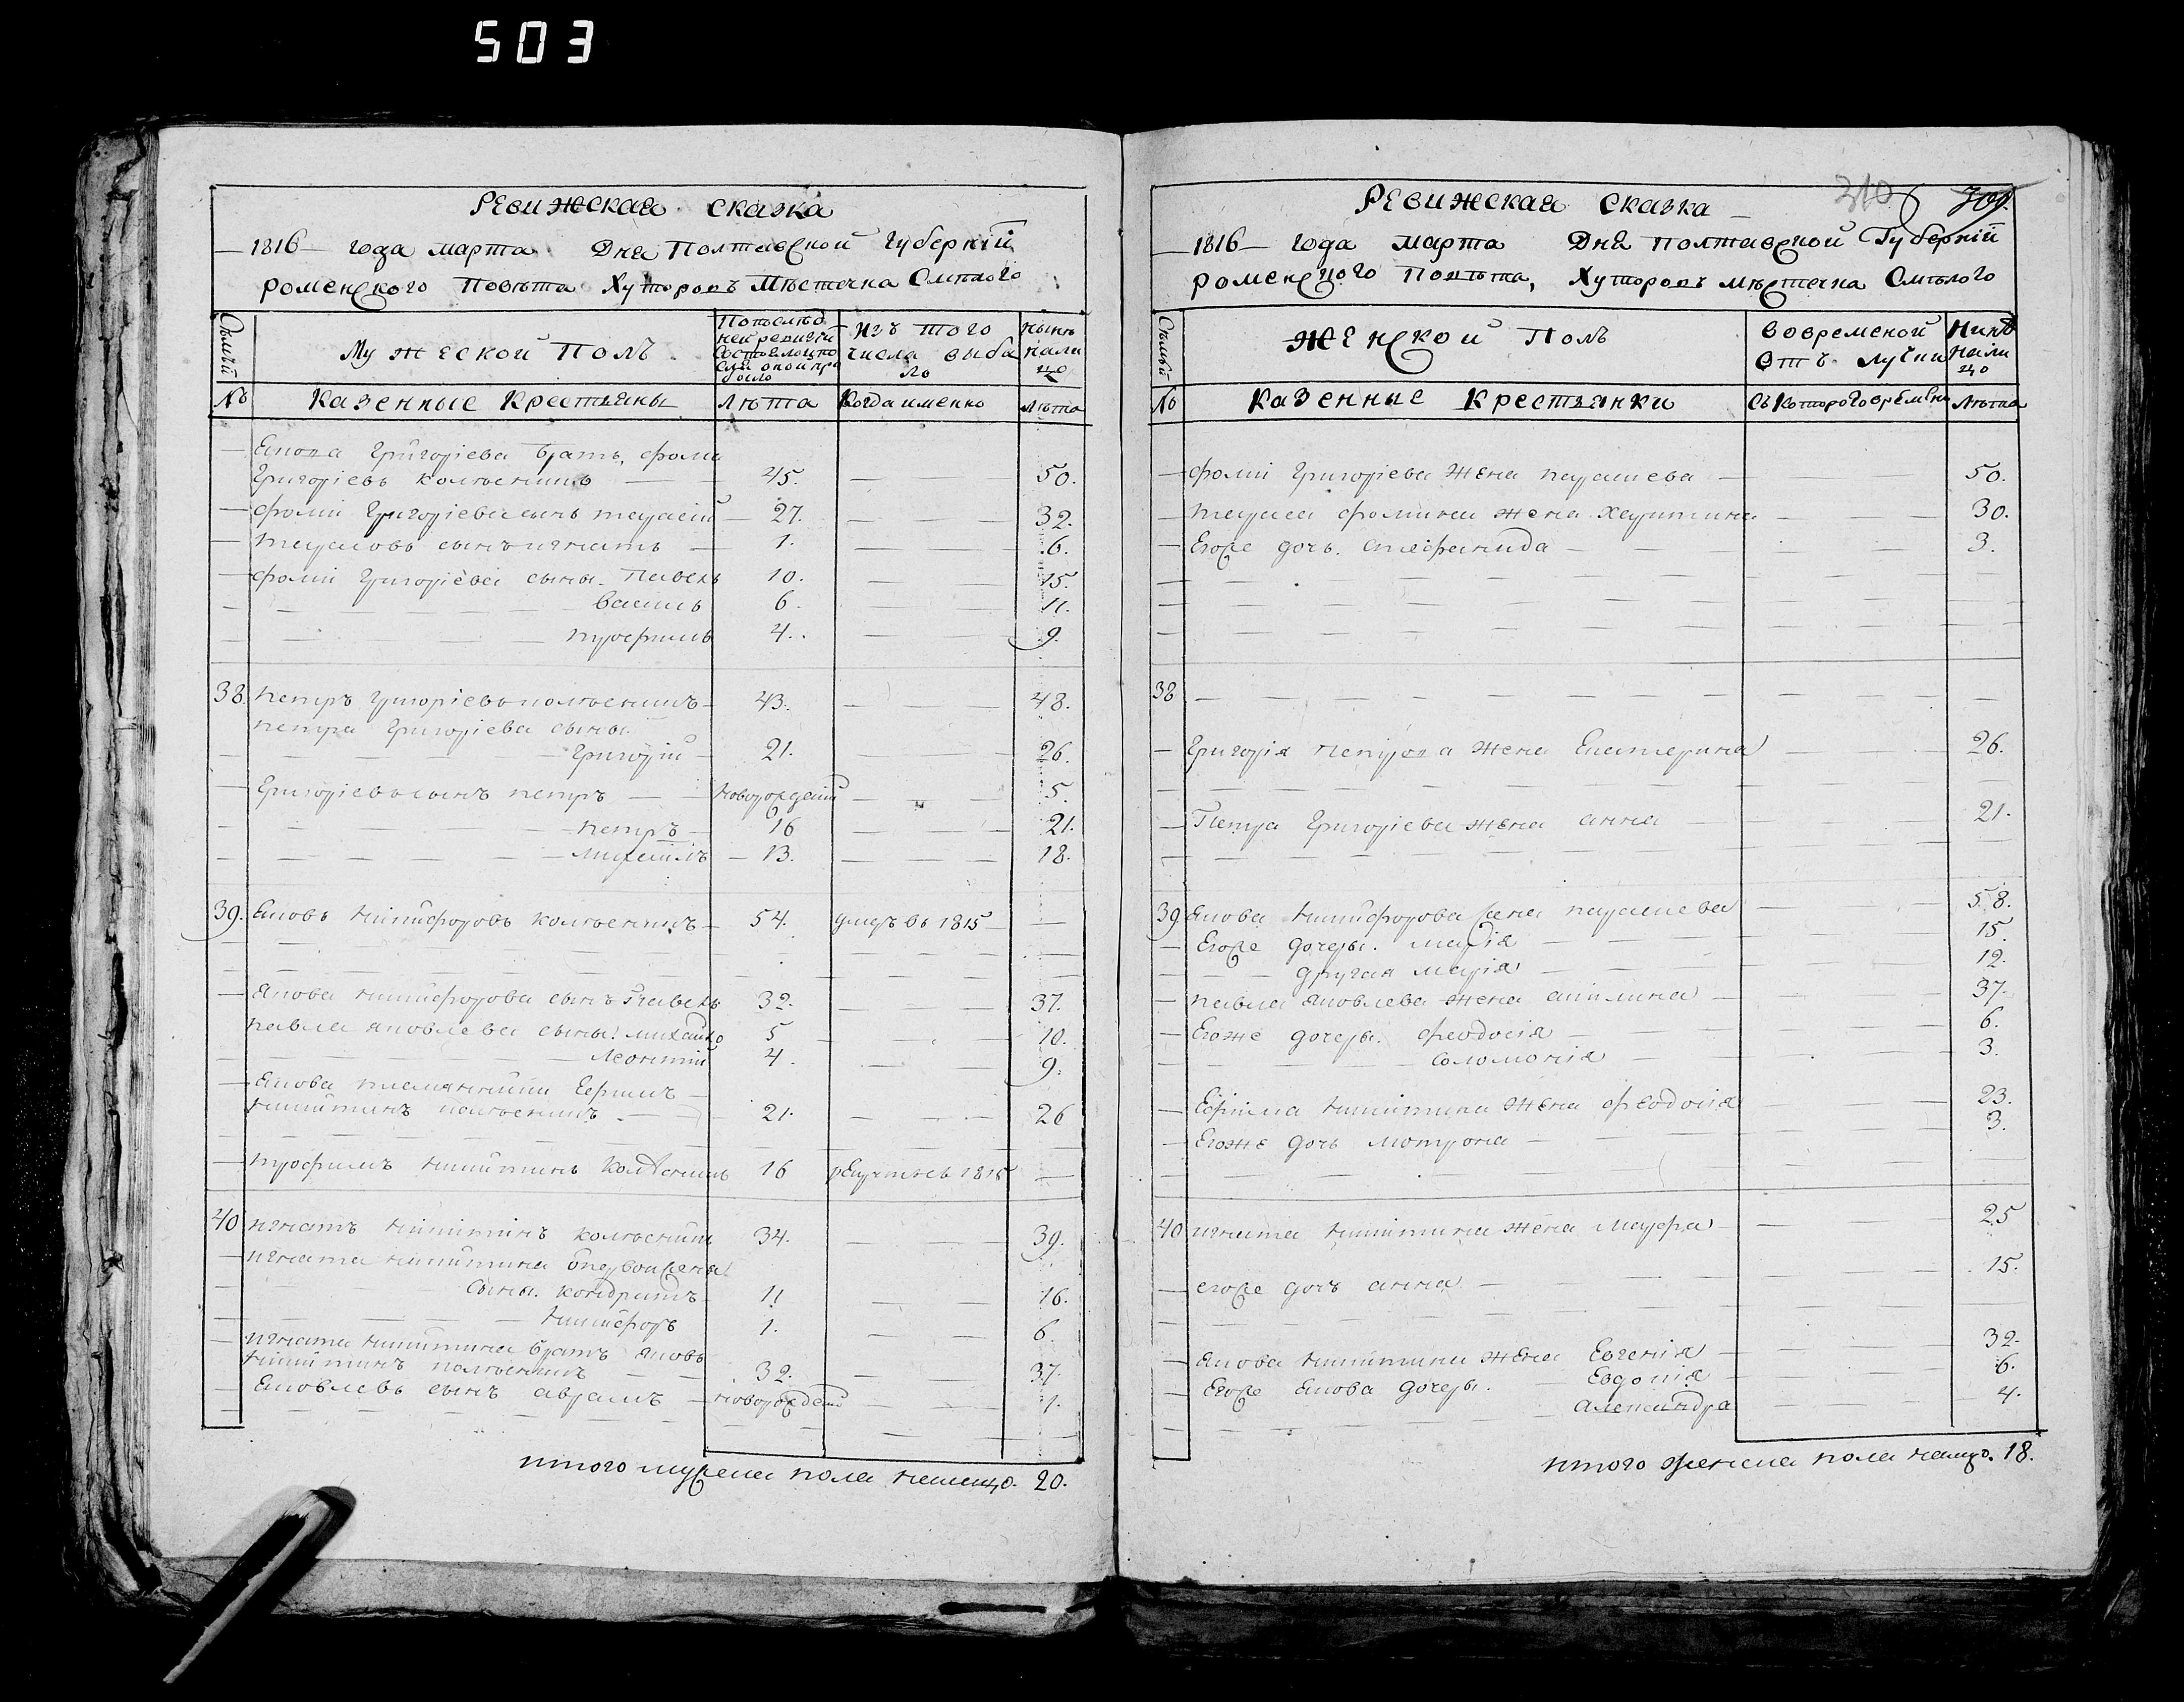 503
Ревижская сказка
1816 года марта Дня Полтавской Губерній
роменского Повѣта Хуторовъ Мѣстечка Смѣлого
Семьи
Мужеской Полъ
По последней ревизіи состояло и после оной прибыло
Изъ того числа выбыло
Нынѣ налицо
№
Казенные Крестьяны
Лѣта
Когда именно
Лѣта
Якова Григоріева братъ, фома
Григоріевъ 45. 50.
Фомы Григоріева сынъ тарасій 27. 32.
Тарасовъ сынъ игнатъ 1. 6.
Фомы Григоріева сыны. Павелъ 10. 15.
василь 6. 11.
трофимъ 4. 9.
38. петръ григоріевъ 43. 48.
петра Григоріева сыны.
Григорій 21. 26.
Григоріевъ сынъ петръ новорожденій 5.
петръ 16 21.
михаилъ 13. 18.
39. Яковъ никифоровъ 54. умеръ въ 1815
Якова никифорова сынъ Павелъ 32. 37.
павла яковлева сыны: михайло 5 10.
леонтій 4. 9.
Якова племянники Ефимъ
никитинъ 21. 26
трофимъ никитинъ 16 рекрутъ въ 1815
40 игнатъ никитинъ 34. 39.
игната никитина
сыны. кондратъ 11 16.
никифоръ 1. 6.
игната никитина братъ яковъ
никитинъ 32. 37.
Яковлевъ сынъ аврамъ новорожденій 1.
итого мужеска пола налицо. 20.
310 309.
Ревижская Сказка
1816 года Марта Дня полтавской Губерній
роменского Повѣта, Хуторовъ мѣстечка Смѣлого
Семьи
Женской Полъ
Во временой отълучки
Нинѣ налицо
№
Казенные Крестьянки
Съ Которого времени
Лѣта
Фомы Григоріева жена параскева 50.
тараса фомина жена харитина 30.
Егоже дочь. стефанида 3.
38
Григорія петрова жена Екатерина 26.
Петра Григоріева жена анна 21.
39. Якова никифорова жена параскева 58.
Егоже дочеры. марія 15.
другая марія 12.
павла яковлева жена акилина 37.
Егоже дочеры. феодосія 6.
соломонія 3.
Ефима никитина жена феодосія 23.
Егоже дочь мотрона 3.
40 игната никитина жена Мауфра 25
егоже дочъ анна 15.
Якова никитина жена Евгенія 32.
Егоже Якова дочеры. Евдокія 6.
александра 4.
итого женска пола налицо. 18.